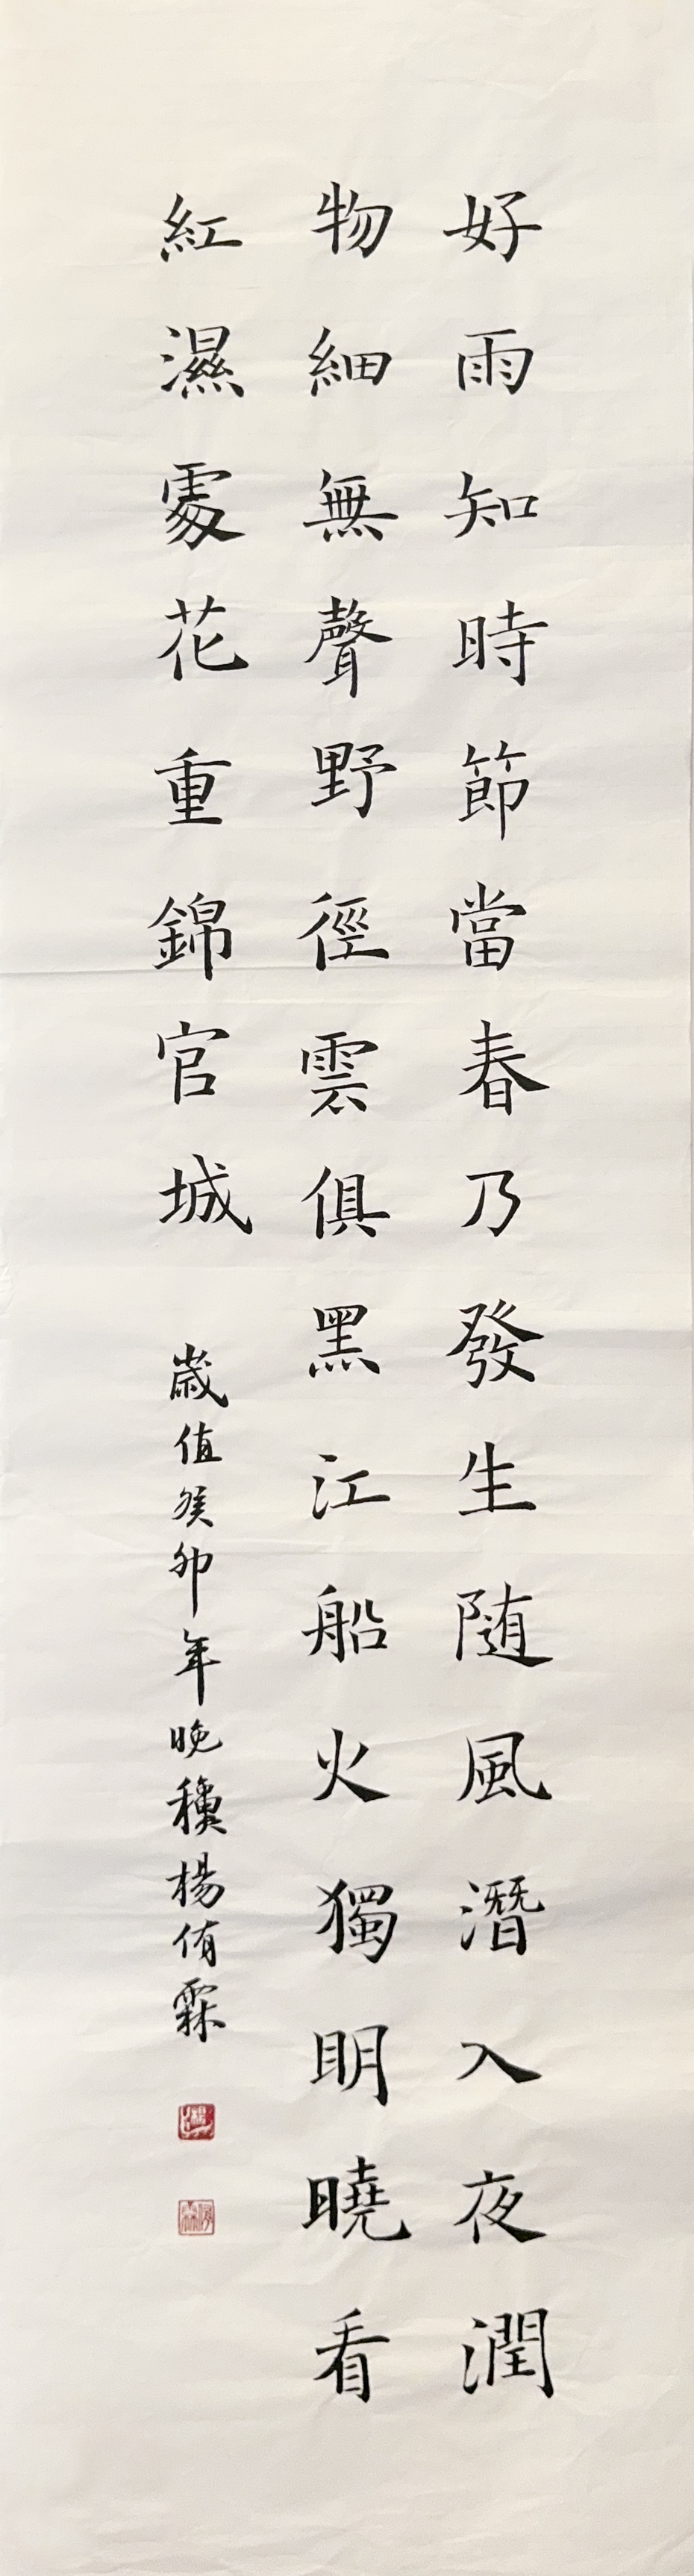 好雨知時節當春乃發生随風潛入夜潤
物細無聲野徑雲俱黑江船火獨明曉看
紅濕處花重錦官城
歲值癸卯年晚穐楊侑霖